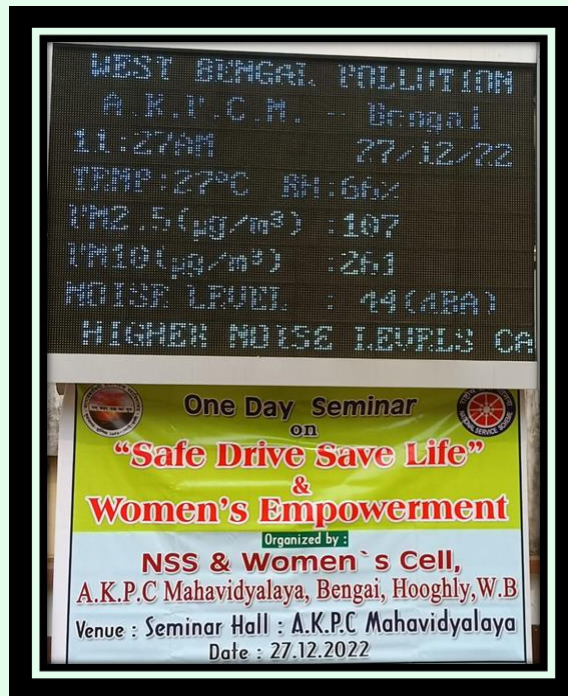 WEST BENGAL POLLUTION
A.K.P.C.M. -- Bengai
11:27AM 27/12/22
TEMP:27°C RH:66%
PM2.5(µg/m³) :107
PM10(µg/m³) :261
NOISE LEVEL : 44(dBA)
HIGHER NOISE LEVELS CA
One Day Seminar
on
“Safe Drive Save Life”
&
Women's Empowerment
Organized by :
NSS & Women`s Cell,
A.K.P.C Mahavidyalaya, Bengai, Hooghly,W.B
Venue : Seminar Hall : A.K.P.C Mahavidyalaya
Date : 27.12.2022
NATIONAL SERVICE SCHEME